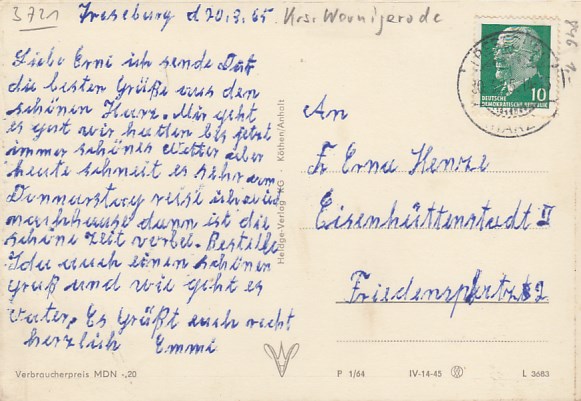 3721
Treseburg d 20.3.65. Krs. Wernigerode
Liebe Erni ich sende Dat
die besten Grüße aus den
schönen Harz. Mir geht
es gut wir hatten bis jetzt
immer schönes Wetter aber
heute schneit es sehr am
Donnarstag reise ich wied
nachhause dann ist die
schöne Zeit vorbei. Bestelle
Ida auch einen schönen
Gruß und wie geht es
Vater. Es Grüßt auch recht
herzlich Emmi
Verbraucherpreis MDN -,20
Heldge-Verlag KG · Köthen/Anhalt
10
DEUTSCHE
DEMOKRATISCHE REPUBLIK
(HARZ)
An
Fr Erna Henze
Eisenhüttenstadt II
P 1/64 IV-14-45 L 3683